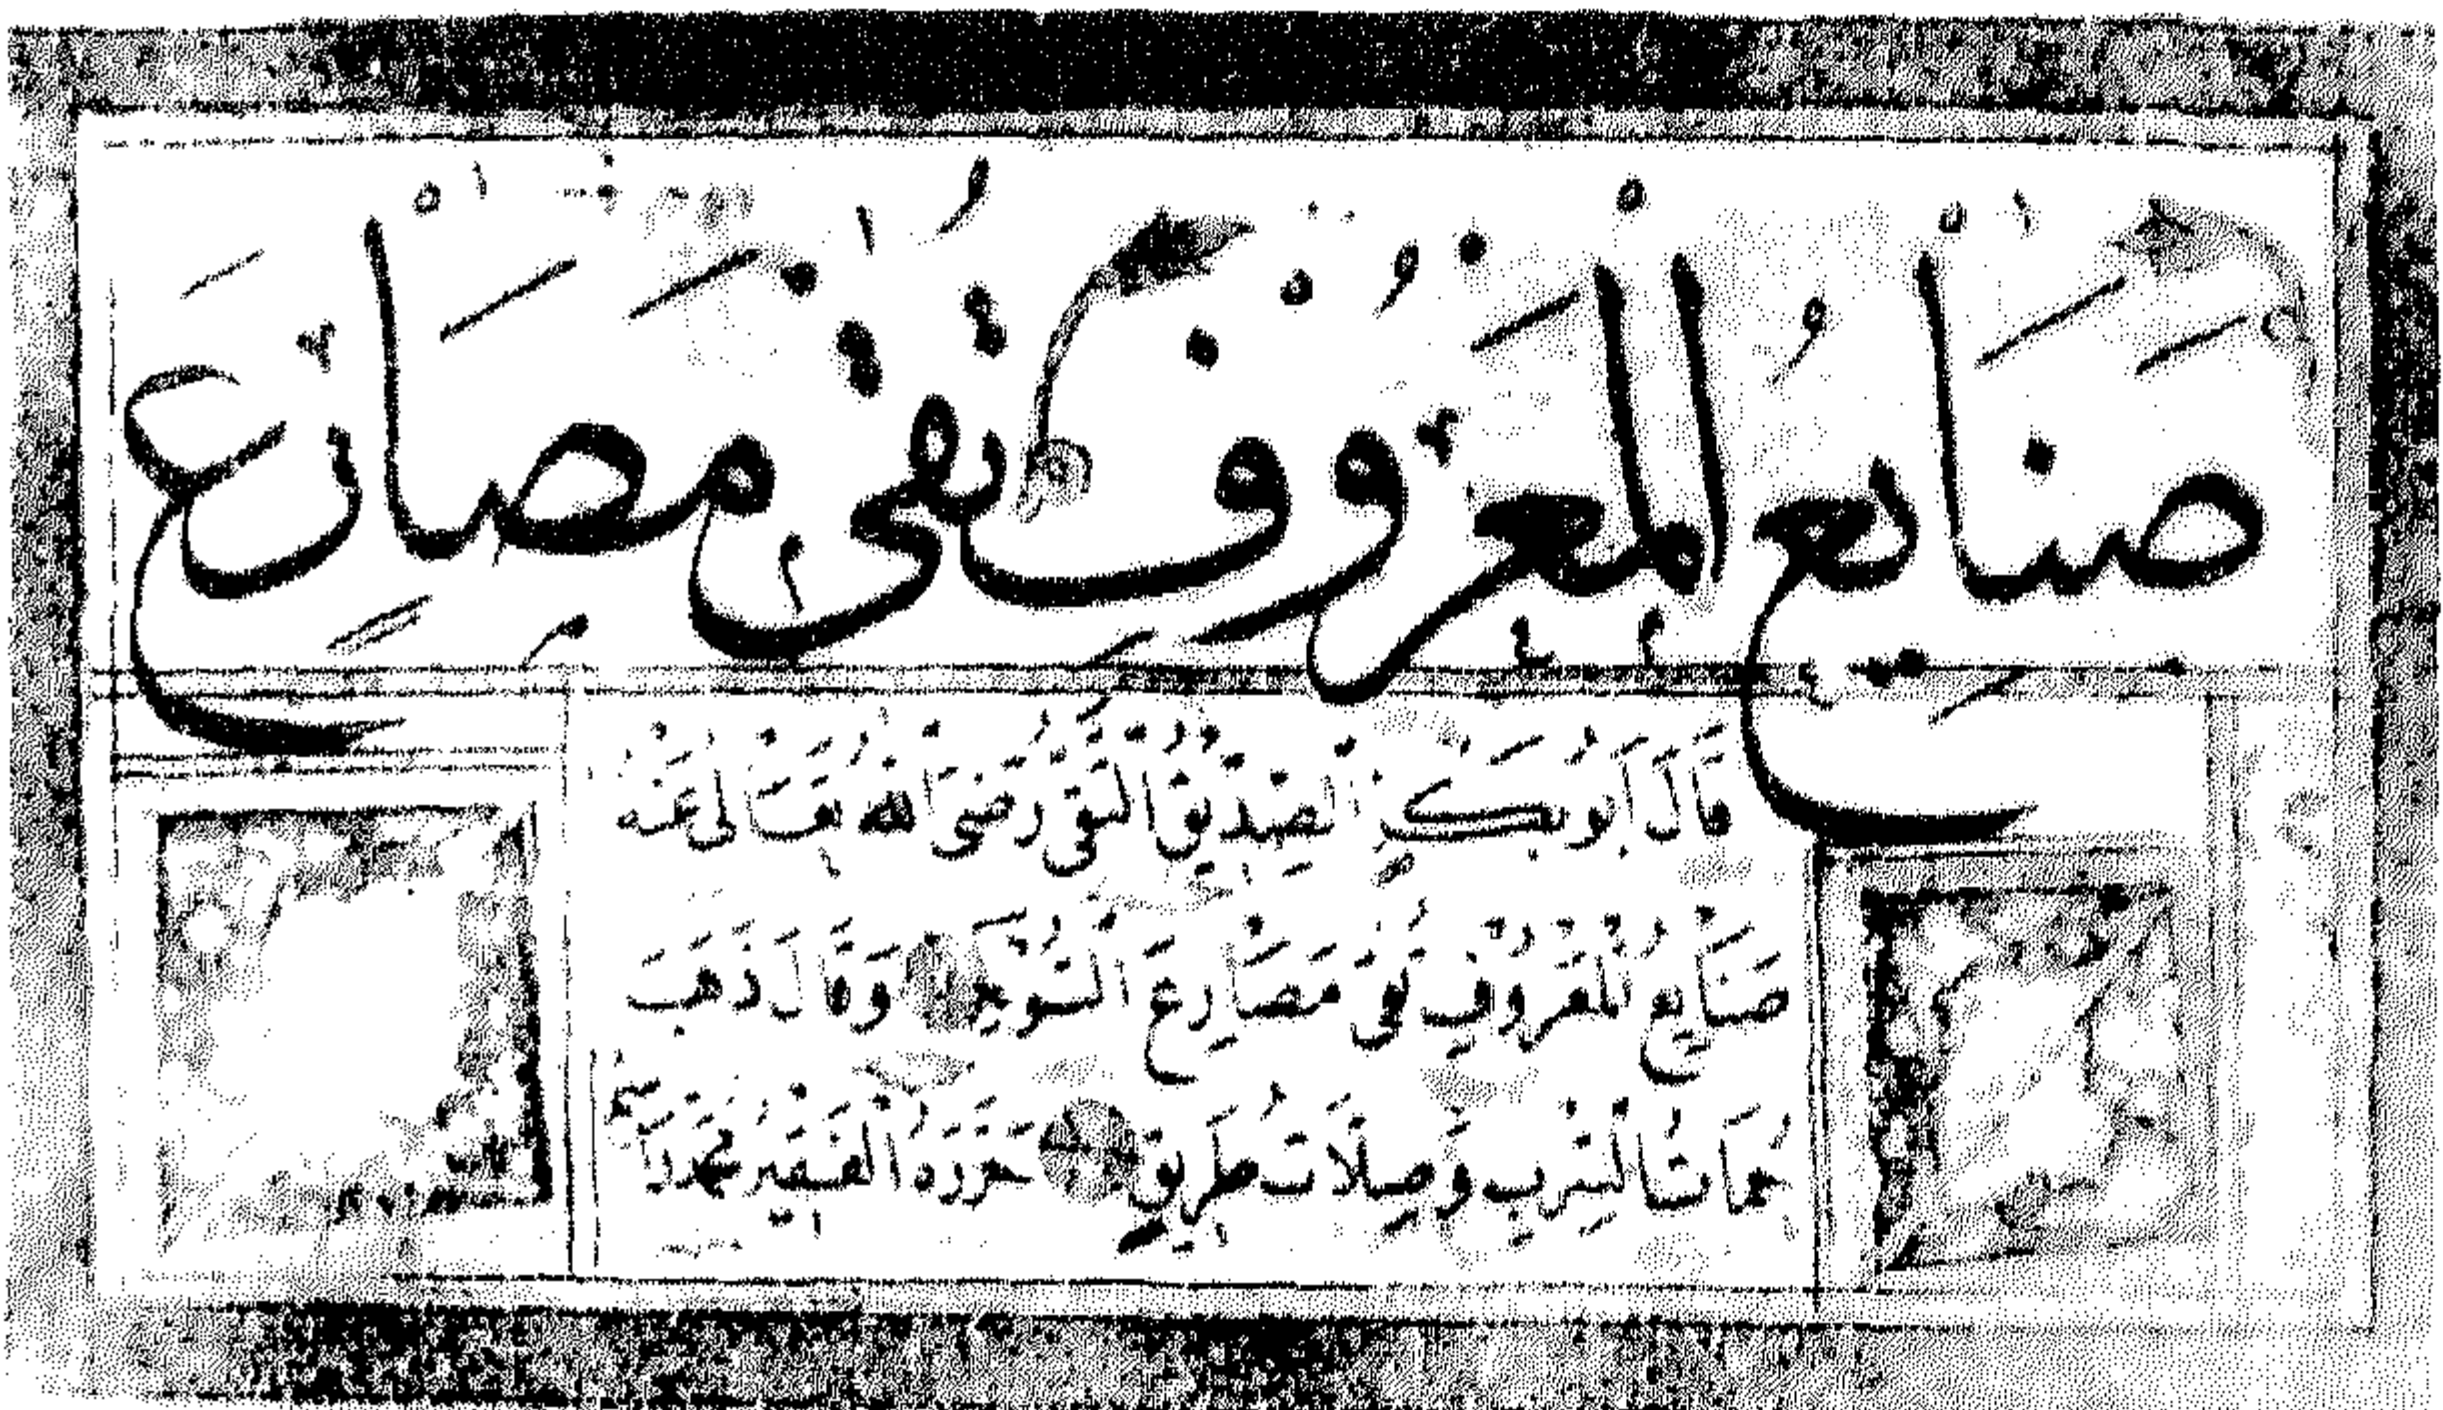 صَنَايِعُ الْمَعْرُوفِ تَقِي مَصَارِعَ
قَالَ أَبُو بَكْرٍ الصِّدِّيقُ التَّقِيُّ رَضِيَ اللهُ تَعَالَى عَنْهُ
صَنَايِعُ الْمَعْرُوفِ تَقِي مَصَارِعَ السُّوءِ وَقَالَ ذَهَبَ
حُمَاتُ السِّرْبِ وَصِلَاتُ طَرِيقٍ حَرَّرَهُ الْفَقِيرُ مُحَمَّد